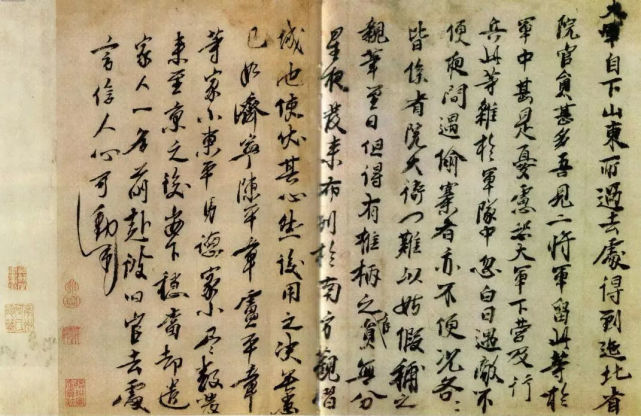 大軍自下山東所過去處得到迤北省
院官員甚多吾見二將軍留此等於
軍中甚是憂慮恐大軍下營及行
兵此等雜於軍隊中忽白日遇敵不
便夜間遇偷寨者亦不便況各各
皆係省院大衙門難以姑假補之
親筆至日但得有椎柄之官員無分
星夜發來布列於南方觀
城池使伏其心然後用之決無患
已如濟寧陳平章盧平章
等家小東平馬德家小尽數發
來至京之後安下穩當却遣
家人一名前赴彼旧官去處
言信人心可動